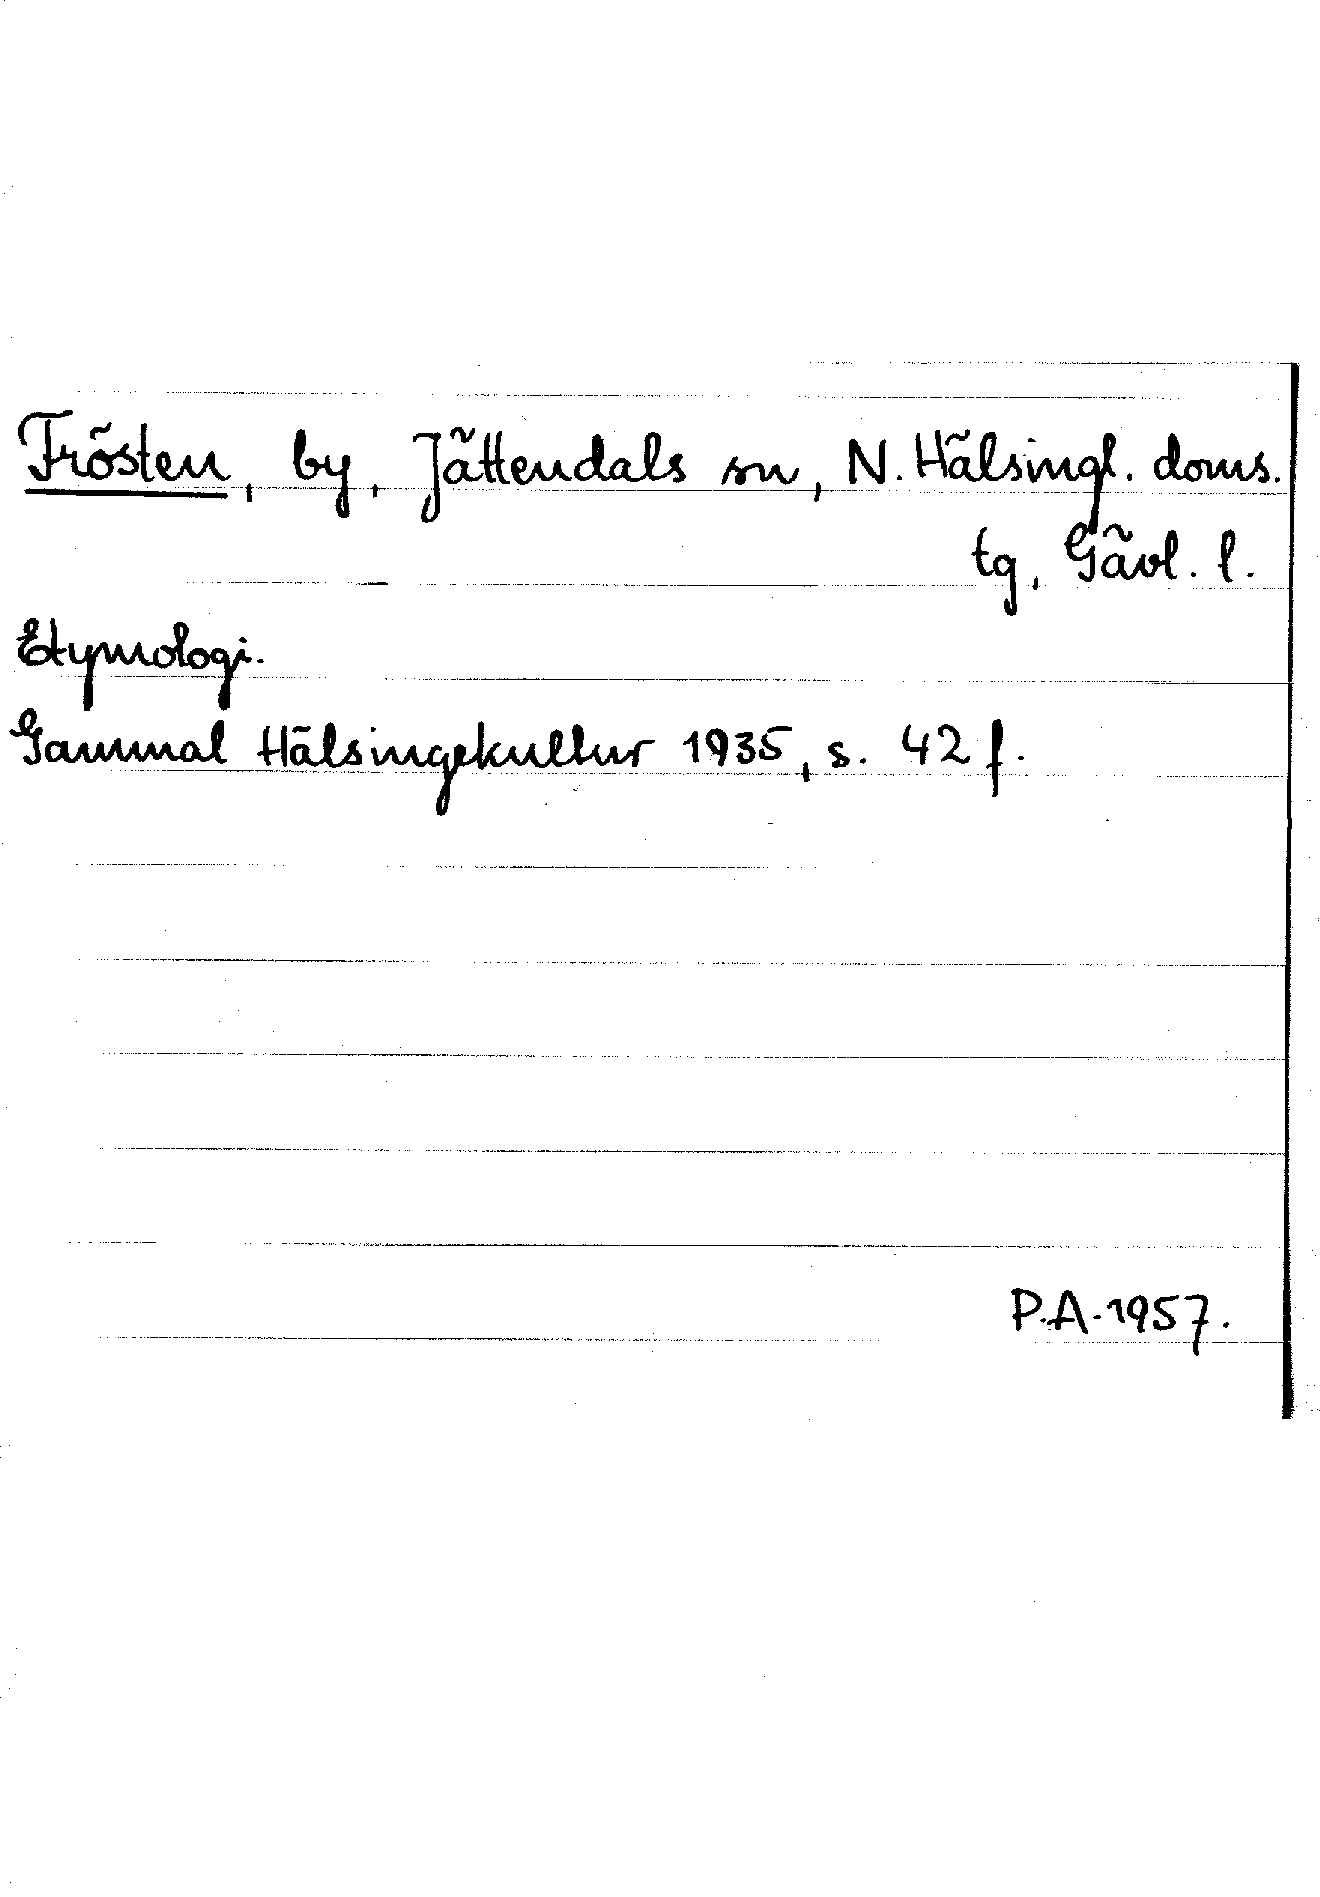 Frösten, by, Jättendals sn, N. Hälsingl. doms.
tg, Gävl. l.
Etymologi.
Gammal Hälsingekultur 1935, s. 42 f.
P.A. 1957.